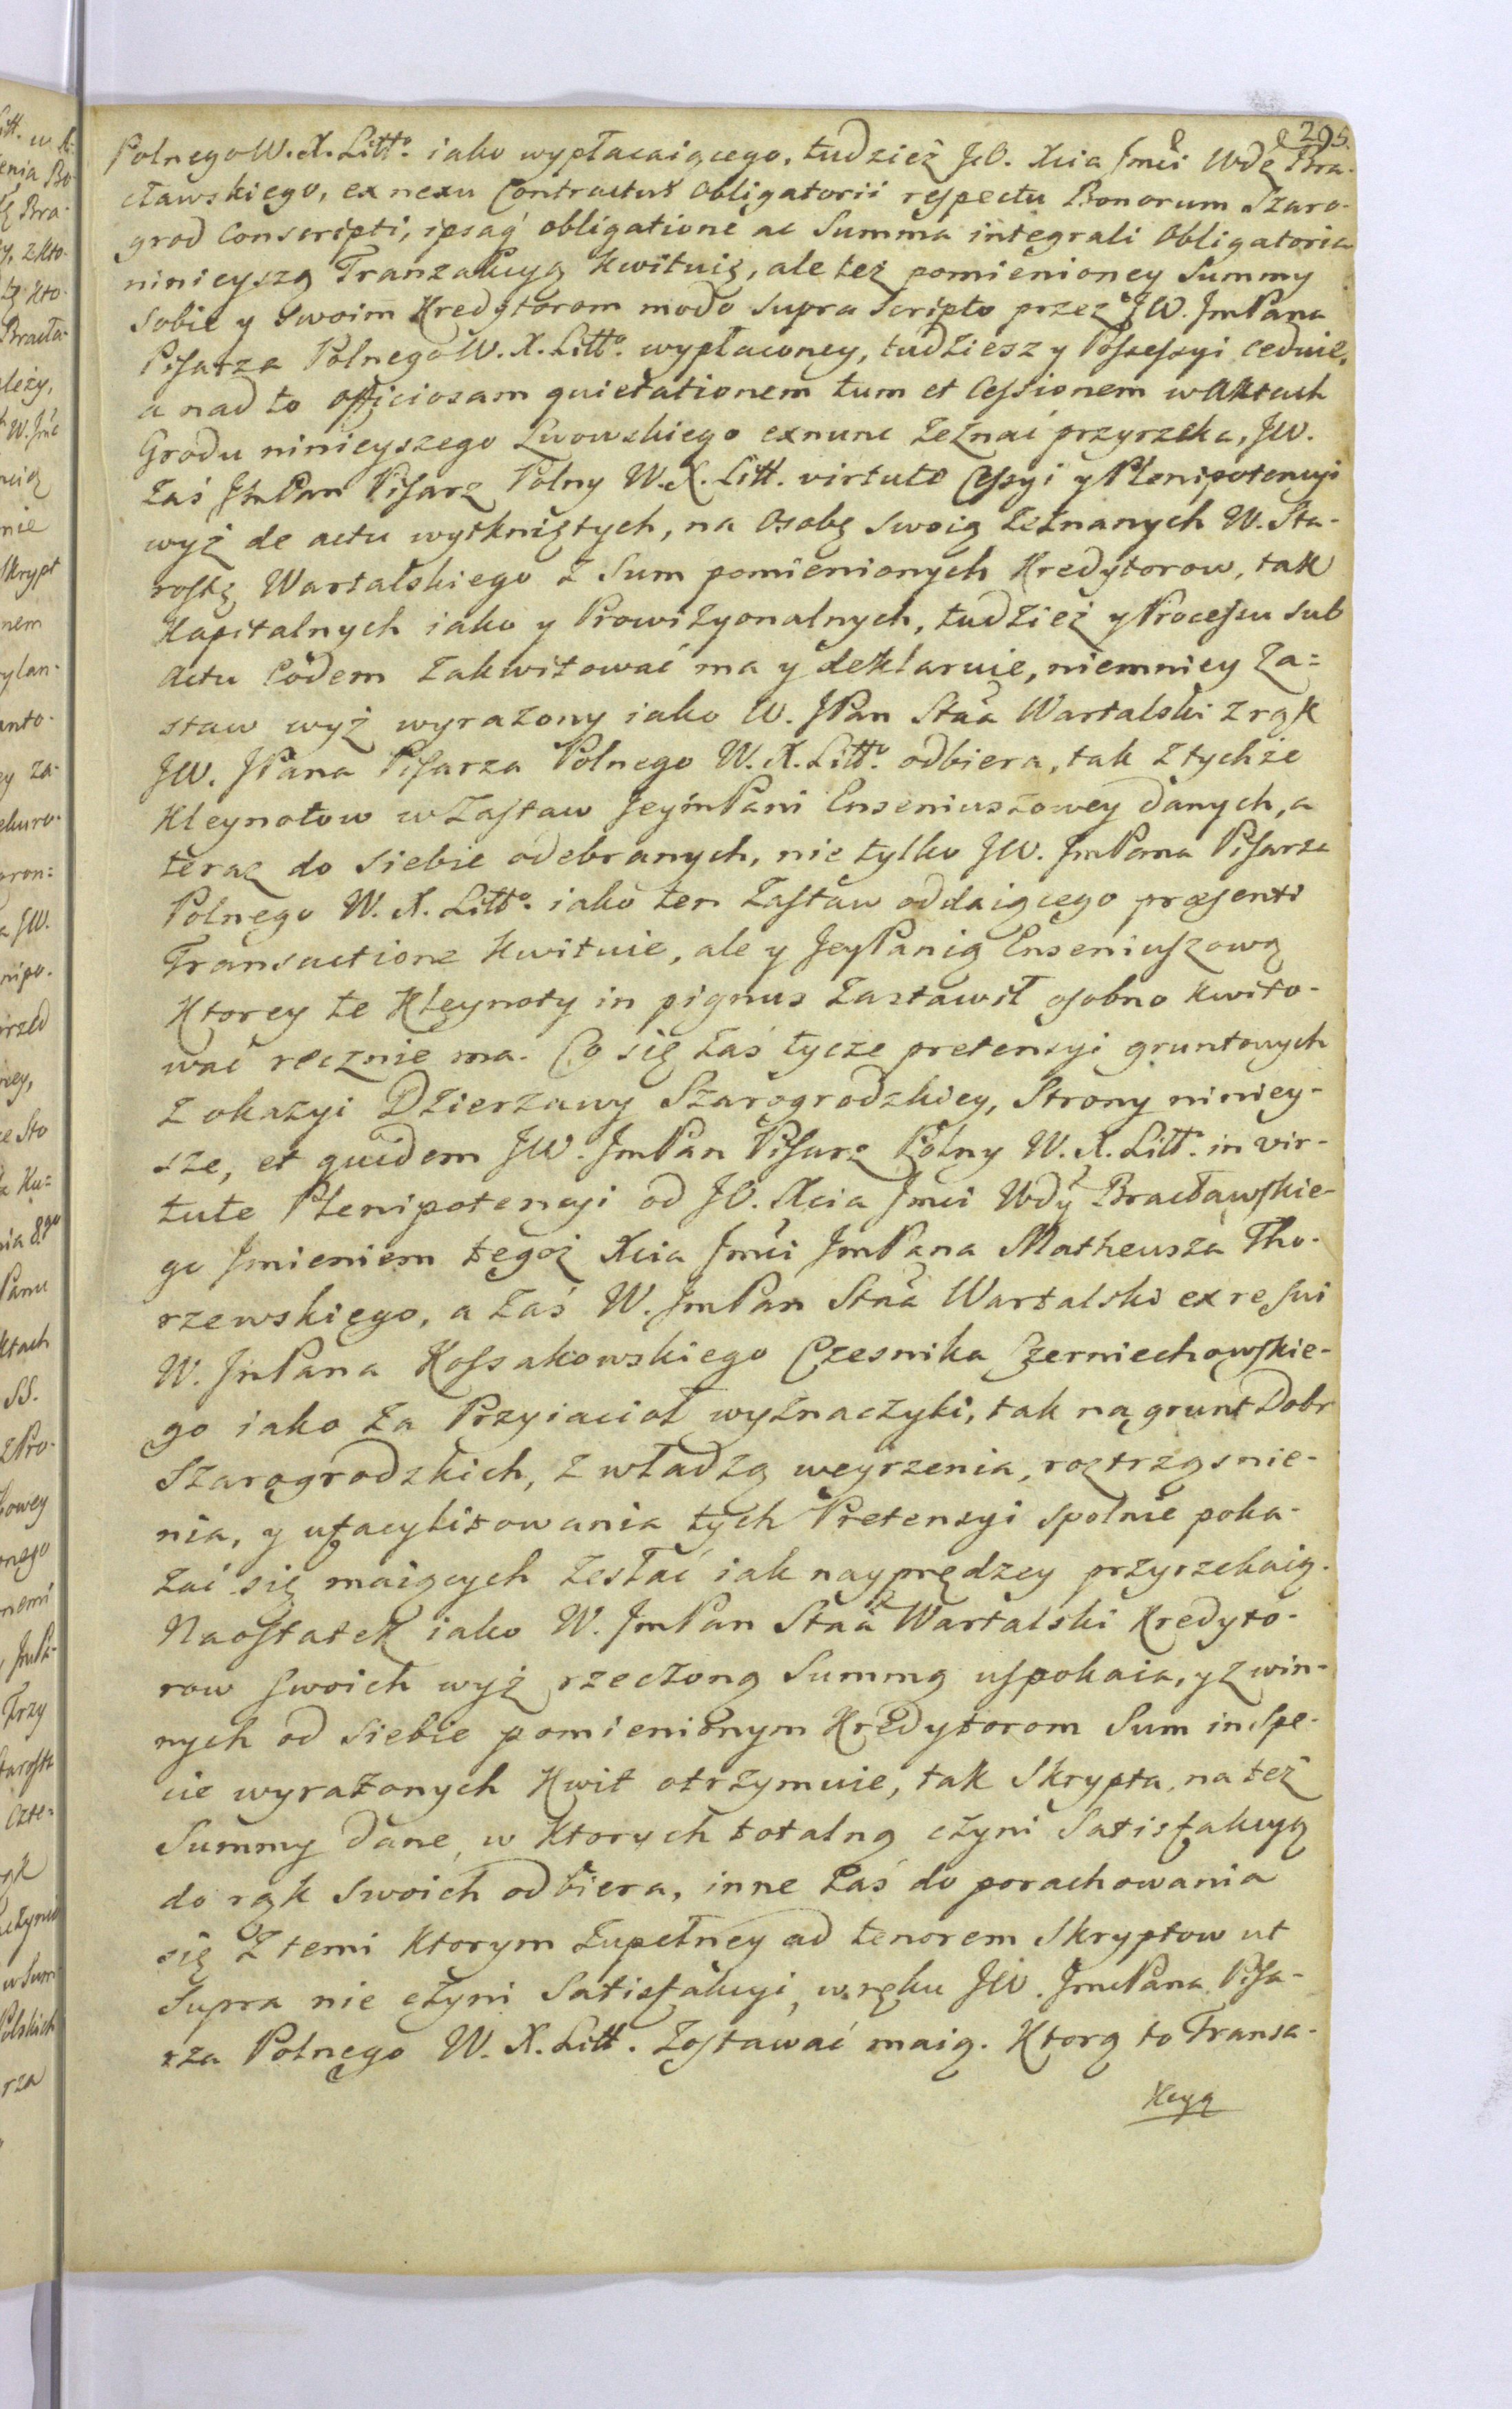 295.
Polnego W. X. Litto. iako wypłacaiącego, tudzież JO. Xcia Jmci Wdę Bra-
cławskiego, ex nexu Contractus obligatorii respectu Bonorum Szaro-
grod Conscripti, ipsaq́ obligatione ac Summa integrali Obligatoria
ninieyszą Tranzakcyą kwituię, ale też pomienioney Summy
sobie y swoim Kredytorom modo supra scripto przez JW. JmPana
Pisarza Polnego W. X. Litto. wypłaconey, tudziesz y Possessyi ceduie,
a nad to officiosam quietationem tum et Cessionem w Aktach
Grodu ninieyszego Lwowskiego exnunc zeznać przyrzeka, JW.
zaś JmPan Pisarz Polny W. X. Litt. virtute Cessyi y Plenipotencyi
wyż de actu wytkniętych, na Osobę swoią zeznanych W. Sta-
rostę Wartalskiego z Sum pomienionych Kredytorow, tak
Kapitalnych iako y Prowizyonalnych, tudzież y Processu sub
Actu Eodem zakwitować ma y deklaruie, niemniey Za=
staw wyż wyrazony iako W. JPan Staa Wartalski z rąk
JW. JPana Pisarza Polnego W. X. Litto. odbiera, tak z tychże
Kleynotow w Zastaw JeymPani Enseniuszowey danych, a
teraz do siebie odebranych, nie tylko JW. JmPana Pisarza
Polnego W. X. Litto. iako ten Zastaw oddaiącego præsenti
Transactione kwituie, ale y JeyPanią Enseniuszową
Ktorey te Kleynoty in pignus zastawił osobno kwito-
wać ręcznie ma. Co się zaś tycze pretensyi gruntowych
z okazyi Dzierzawy Szarogrodzkiey, Strony niniey-
sze, et quidem JW. JmPan Pisarz Polny W. X. Litt. in vir-
tute Plenipotencyi od JO. Xcia Jmci Wdy Bracławskie-
go Jmieniem tegoż Xcia Jmci JmPana Matheusza Tho-
rzewskiego, a zaś W. JmPan Staa Wartalski ex re sui
W. JmPana Kossakowskiego Czesnika Czerniechowskie-
go iako za Przyiacioł wyznaczyli, tak na grunt Dobr
Szarogrodzkich, z władzą weyrzenia, roztrząsnie-
nia, y ufacylitowania tych Pretensyi spolnie poka-
zać się maiących zesłać iak nayprędzey przyrzekaią.
Naostatek iako W. JmPan Staa Wartalski Kredyto-
row swoich wyż rzeczoną Summą uspokaia, y z win-
nych od siebie pomienionym Kredytorom Sum in Spe-
cie wyrażonych Kwit otrzymuie, tak Skrypta na też
Summy dane, w Ktorych totalną czyni Satisfakcyą
do rąk swoich odbiera, inne zaś do porachowania
się z temi Ktorym zupełney ad tenorem Skryptow ut
supra nie czyni Satisfakcyi, w ręku JW. JmcPana Pisa-
rza Polnego W. X. Litt. zostawać maią. Ktorą to Transa-
kcyą